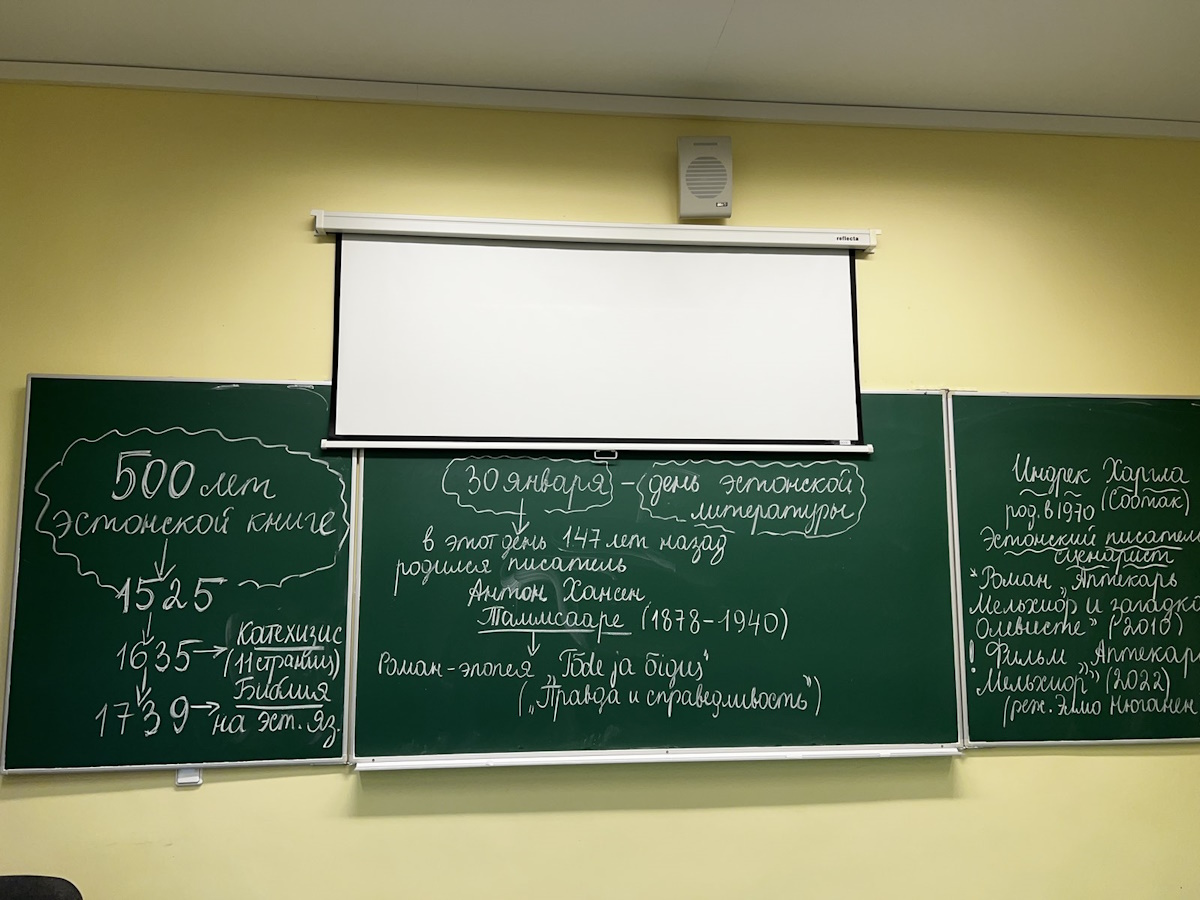 reflecta
500 лет
эстонской книге
1525
1635 → Катехизис
(11 страниц)
1739 → Библия
на эст. яз.
30 января – день эстонской
литературы
в этот день 147 лет назад
родился писатель
Антон Хансен
Таммсааре (1878–1940)
Роман-эпопея „Tõde ja õigus“
(„Правда и справедливость“)
Индрек Харгла
род. в 1970 (Соотак)
Эстонский писатель
сценарист
*Роман „Аптекарь
Мельхиор и загадка
Олевисте“ (2010)
! Фильм „Аптекарь
! Мельхиор“ (2022)
(реж. Элмо Нюганен